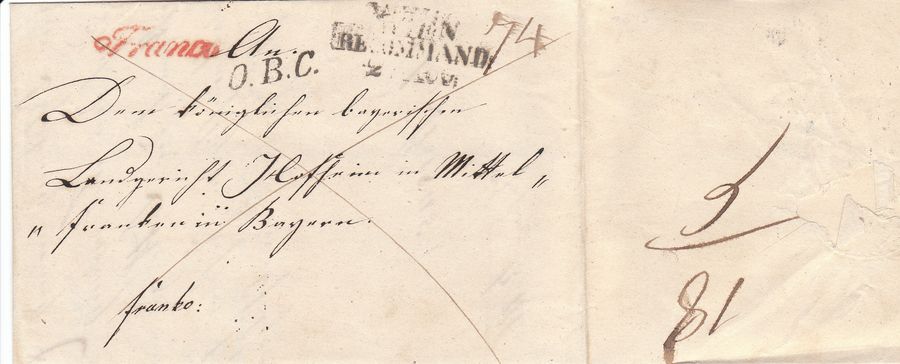 Franco An.
O.B.C.
WIEN
RECOMMAND.
Dem königlichen bayerischen
Landgericht Hofheim in Mittel „
„ franken in Bayern.
franko: